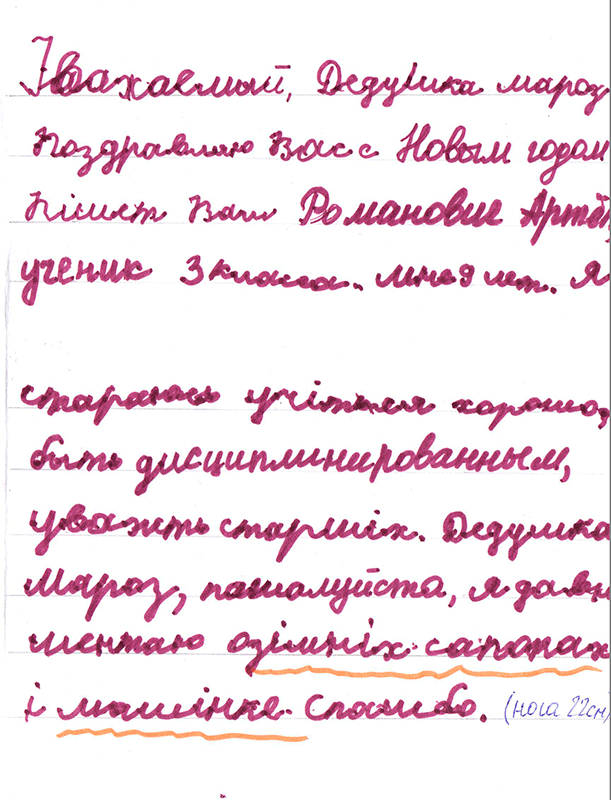 Уважаемый, Дедушка мароз
Поздравляю Вас с Новым годом
Пішет Вам Романовие Артём,
ученик 3 класса. мне 9 лет. Я
стараюсь учітся хорошо,
быть дисциплинированным,
уважть старшіх. Дедушка
Мароз, пашалуйста, я давн
ментаю озімніх сапогах
і машінке спасибо. (нога 22см)